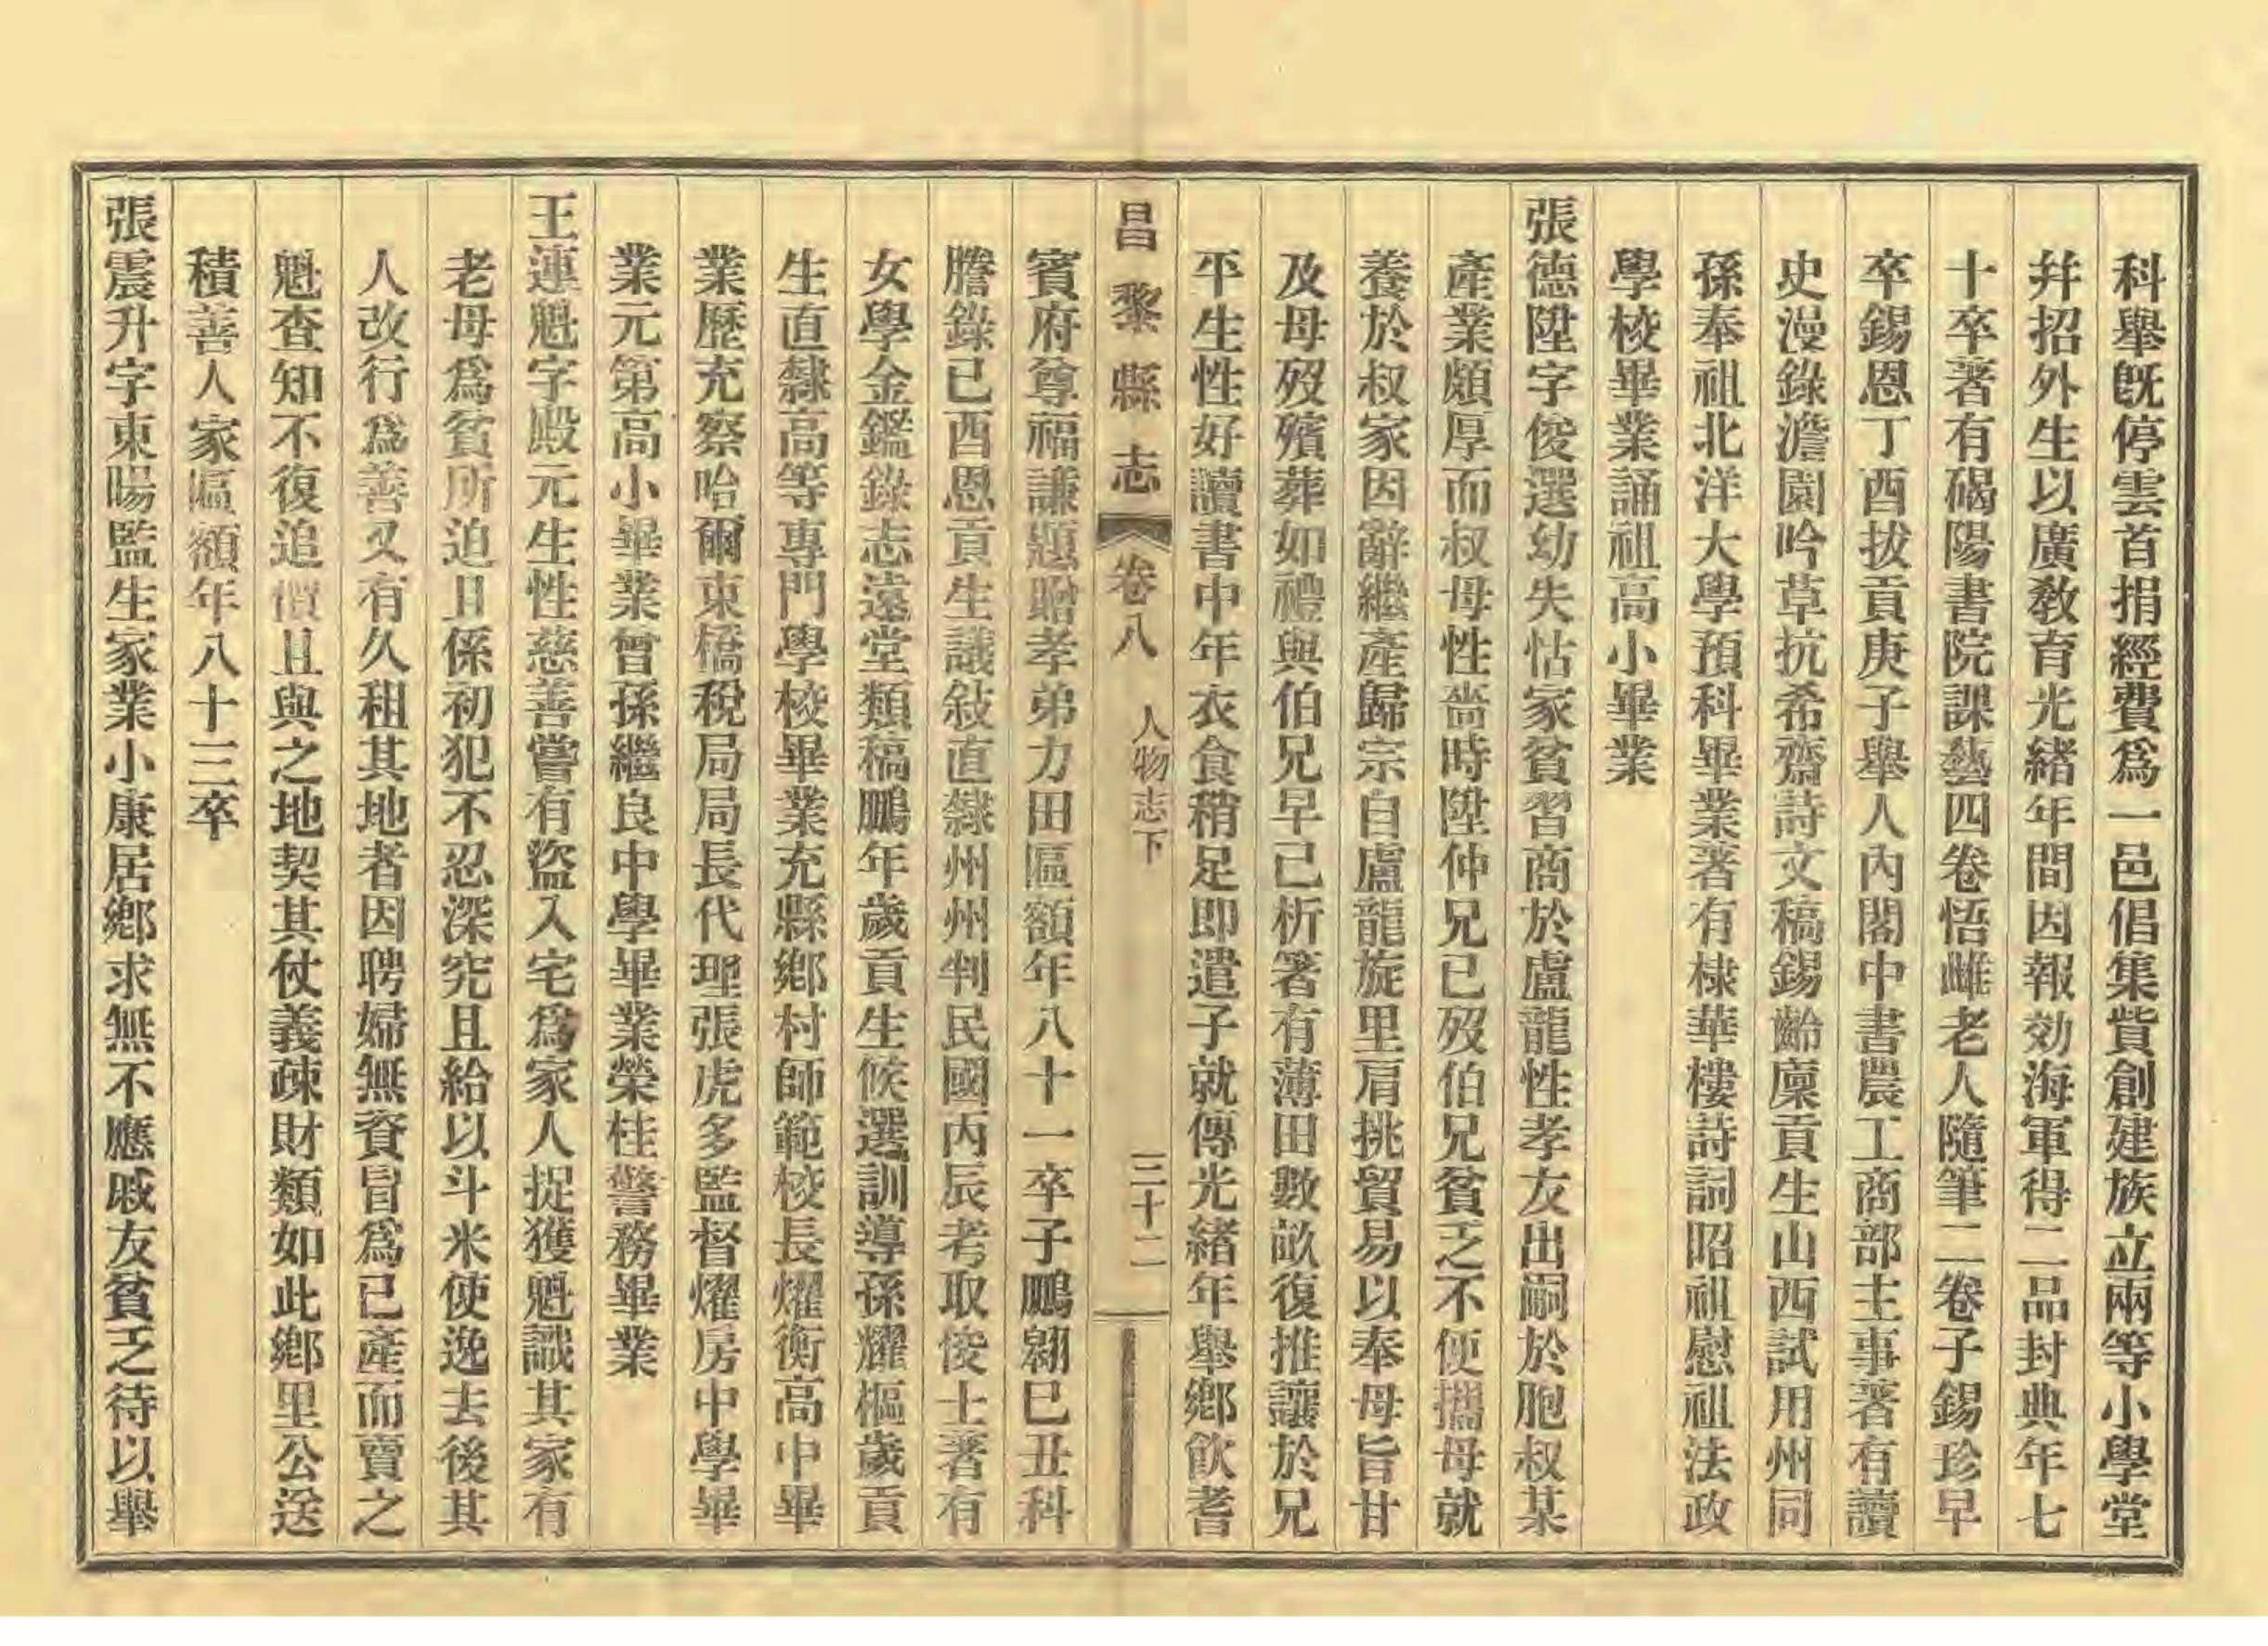 科舉旣停雲首捐經費爲一邑倡集貲創建族立兩等小學堂
幷招外生以廣敎育光緒年間因報効海軍得二品封典年七
十卒著有碣陽書院課藝四卷悟雌老人隨筆二卷子錫珍早
卒錫恩丁酉拔貢庚子舉人內閣中書農工商部主事著有讀
史漫錄澹園吟草抗希齋詩文稿錫齡廩貢生山西試用州同
孫奉祖北洋大學預科畢業著有棣華樓詩詞昭祖慰祖法政
學校畢業誦祖高小畢業
張德陞字俊選幼失怙家貧習商於盧龍性孝友出嗣於胞叔某
產業頗厚而叔母性嗇時陞仲兄已歿伯兄貧乏不便攜母就
養於叔家因辭繼產歸宗自盧龍旋里肩挑貿易以奉母旨甘
及母歿殯葬如禮與伯兄早已析箸有薄田數畝復推讓於兄
平生性好讀書中年衣食稍足即遣子就傳光緒年舉鄉飲耆
昌黎縣志 卷八 人物志下 三十二
賓府尊福謙題贈孝弟力田匾額年八十一卒子鵬翱巳丑科
謄錄已酉恩貢生議敍直隸州州判民國丙辰考取俊士著有
女學金鑑錄志遠堂類稿鵬年歲貢生候選訓導孫耀樞歲貢
生直隸高等專門學校畢業充縣鄉村師範校長耀衡高中畢
業歷充察哈爾東橋稅局局長代理張虎多監督燿房中學畢
業元第高小畢業曾孫繼良中學畢業榮桂警務畢業
王連魁字殿元生性慈善嘗有盜入宅爲家人捉獲魁識其家有
老母爲貧所迫且係初犯不忍深究且給以斗米使逸去後其
人改行爲善又有久租其地者因聘婦無資冒爲己產而賣之
魁查知不復追價且與之地契其仗義疎財類如此鄉里公送
積善人家匾額年八十三卒
張震升字東暘監生家業小康居鄉求無不應戚友貧乏待以舉